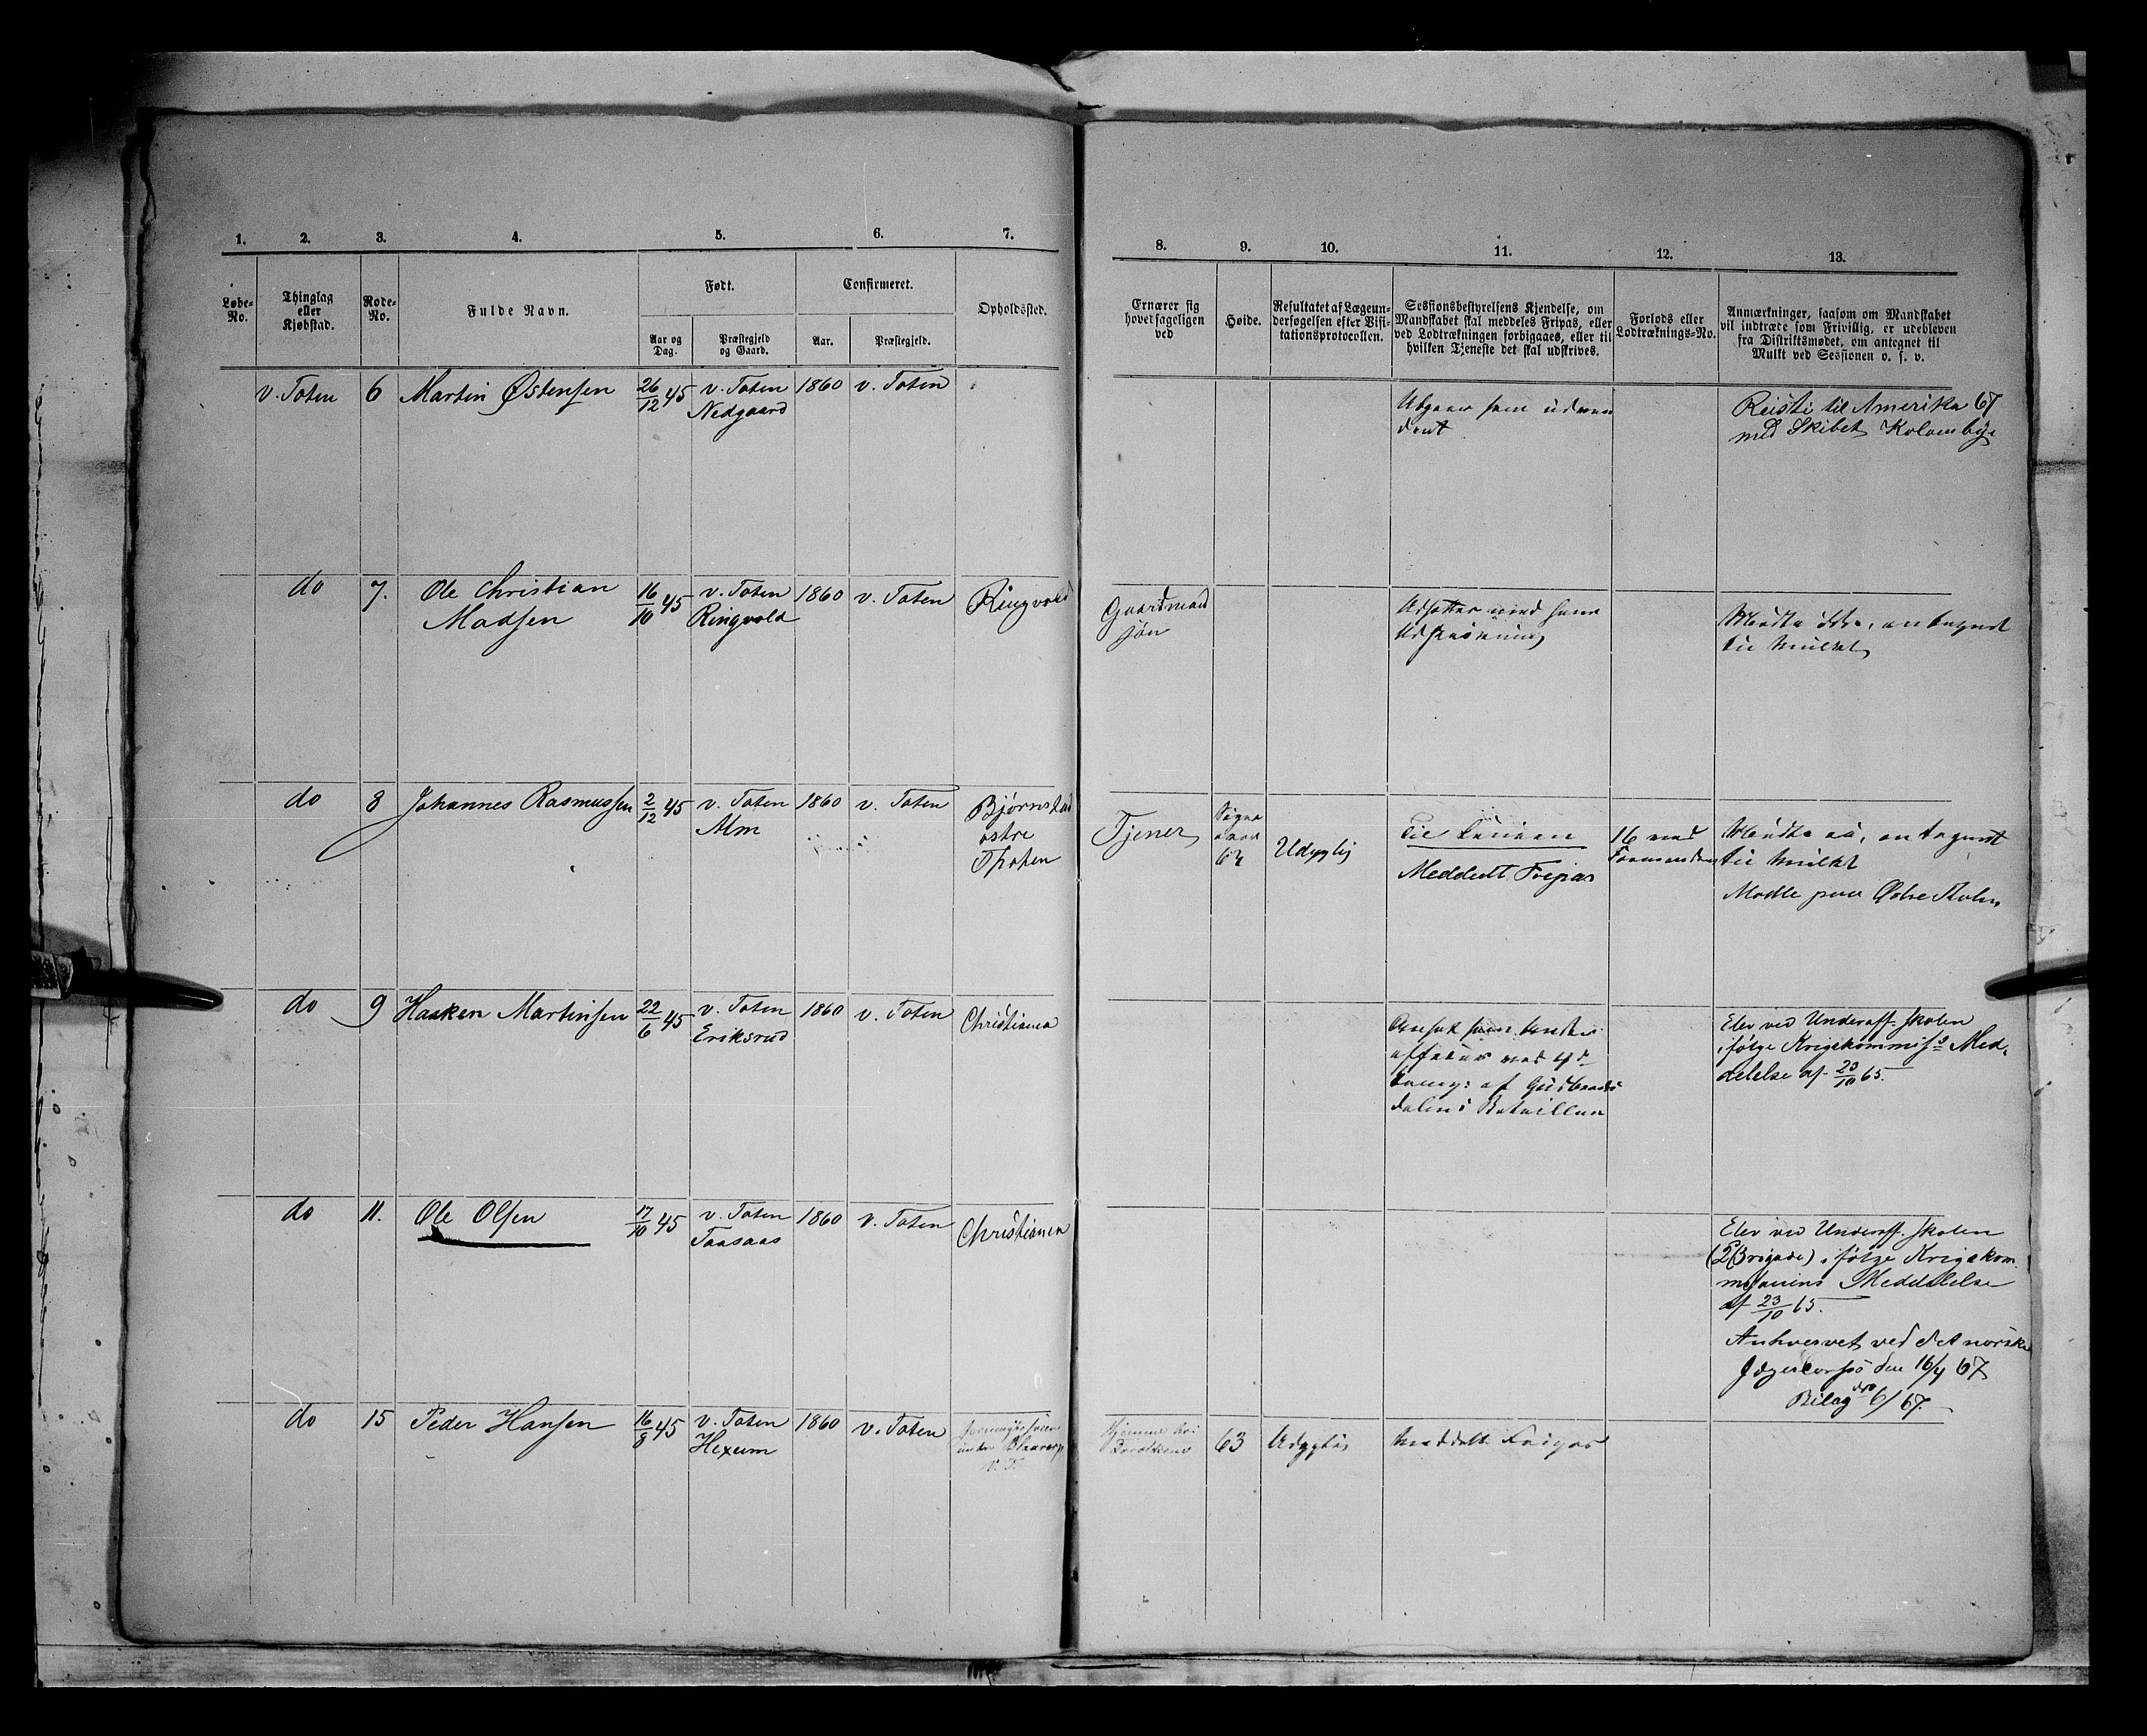 1. 2. 3. 4. 5. 6. 7.
Løbe-No.
Thinglag eller Kjøbstad.
Rode-No.
Fulde Navn.
Født.
Aar og Dag.
Præstegjeld og Gaard.
Confirmeret.
Aar.
Præstegjeld.
Opholdssted.
8. 9. 10. 11. 12. 13.
Ernærer sig hovedsageligen ved
Høide.
Resultatet af Lægeundersøgelsen efter Visitationsprotocollen.
Sessionsbestyrelsens Kjendelse, om Mandskabet skal meddeles Fripas, eller ved Lodtrækningen forbigaaes, eller til hvilken Tjeneste det skal udskrives.
Forlods eller Lodtræknings-No.
Anmærkninger, saasom om Mandskabet vil indtræde som Frivillig, er udebleven fra Distriktsmødet, om antegnet til Mulkt ved Sessionen o. s. v.
v. Toten 6 Martin Østensen 26/12 45 v. Toten 1860 v. Toten
Nedgaard
Udgaar som udvan
dret
Reiste til Amerika 67
med Skibet
do 7. Ole Christian 16/10 45 v. Toten 1860 v. Toten Ringvold
Madsen Ringvold
Gaardmand
søn
Udsættes med hans
Udskrivning
Mødte ikke, antegnet
til Mulkt
do 8 Johannes Rasmussen 2/12 45 v. Toten 1860 v. Toten Bjørnstad
Alm østre
Thoten
Tjener
Udygtig
Til Linien
Meddeelt Fripas
16 ved
Formanden
Mødte ei, antegnet
til Mulkt
Mødte paa Østre Thoten
do 9 Haaken Martinsen 22/6 45 v. Toten 1860 v. Toten Christiania
Eriksrud
Ansat som Under
officer ved 4de
Comp: af Gudbrands
dalens Bataillon
Elev ved Underoff. skolen
ifølge Krigskommiss Med
delelse af 23/10 65.
do 11. Ole Olsen 17/10 45 v. Toten 1860 v. Toten Christiania
Taasaas
Elev ved Underoff. skolen
(2 Brigade) ifølge Krigskom
missariens Meddelelse
af 23/10 65.
Anhvervet ved det norske
Jægercorps den 16/4 67
Bilag 6/67.
do 15 Peder Hansen 16/8 45 v. Toten 1860 v. Toten
Hexum
under
V. T.
Hjemme hos
Forældrene
63 Udygtig Meddelt Fripas